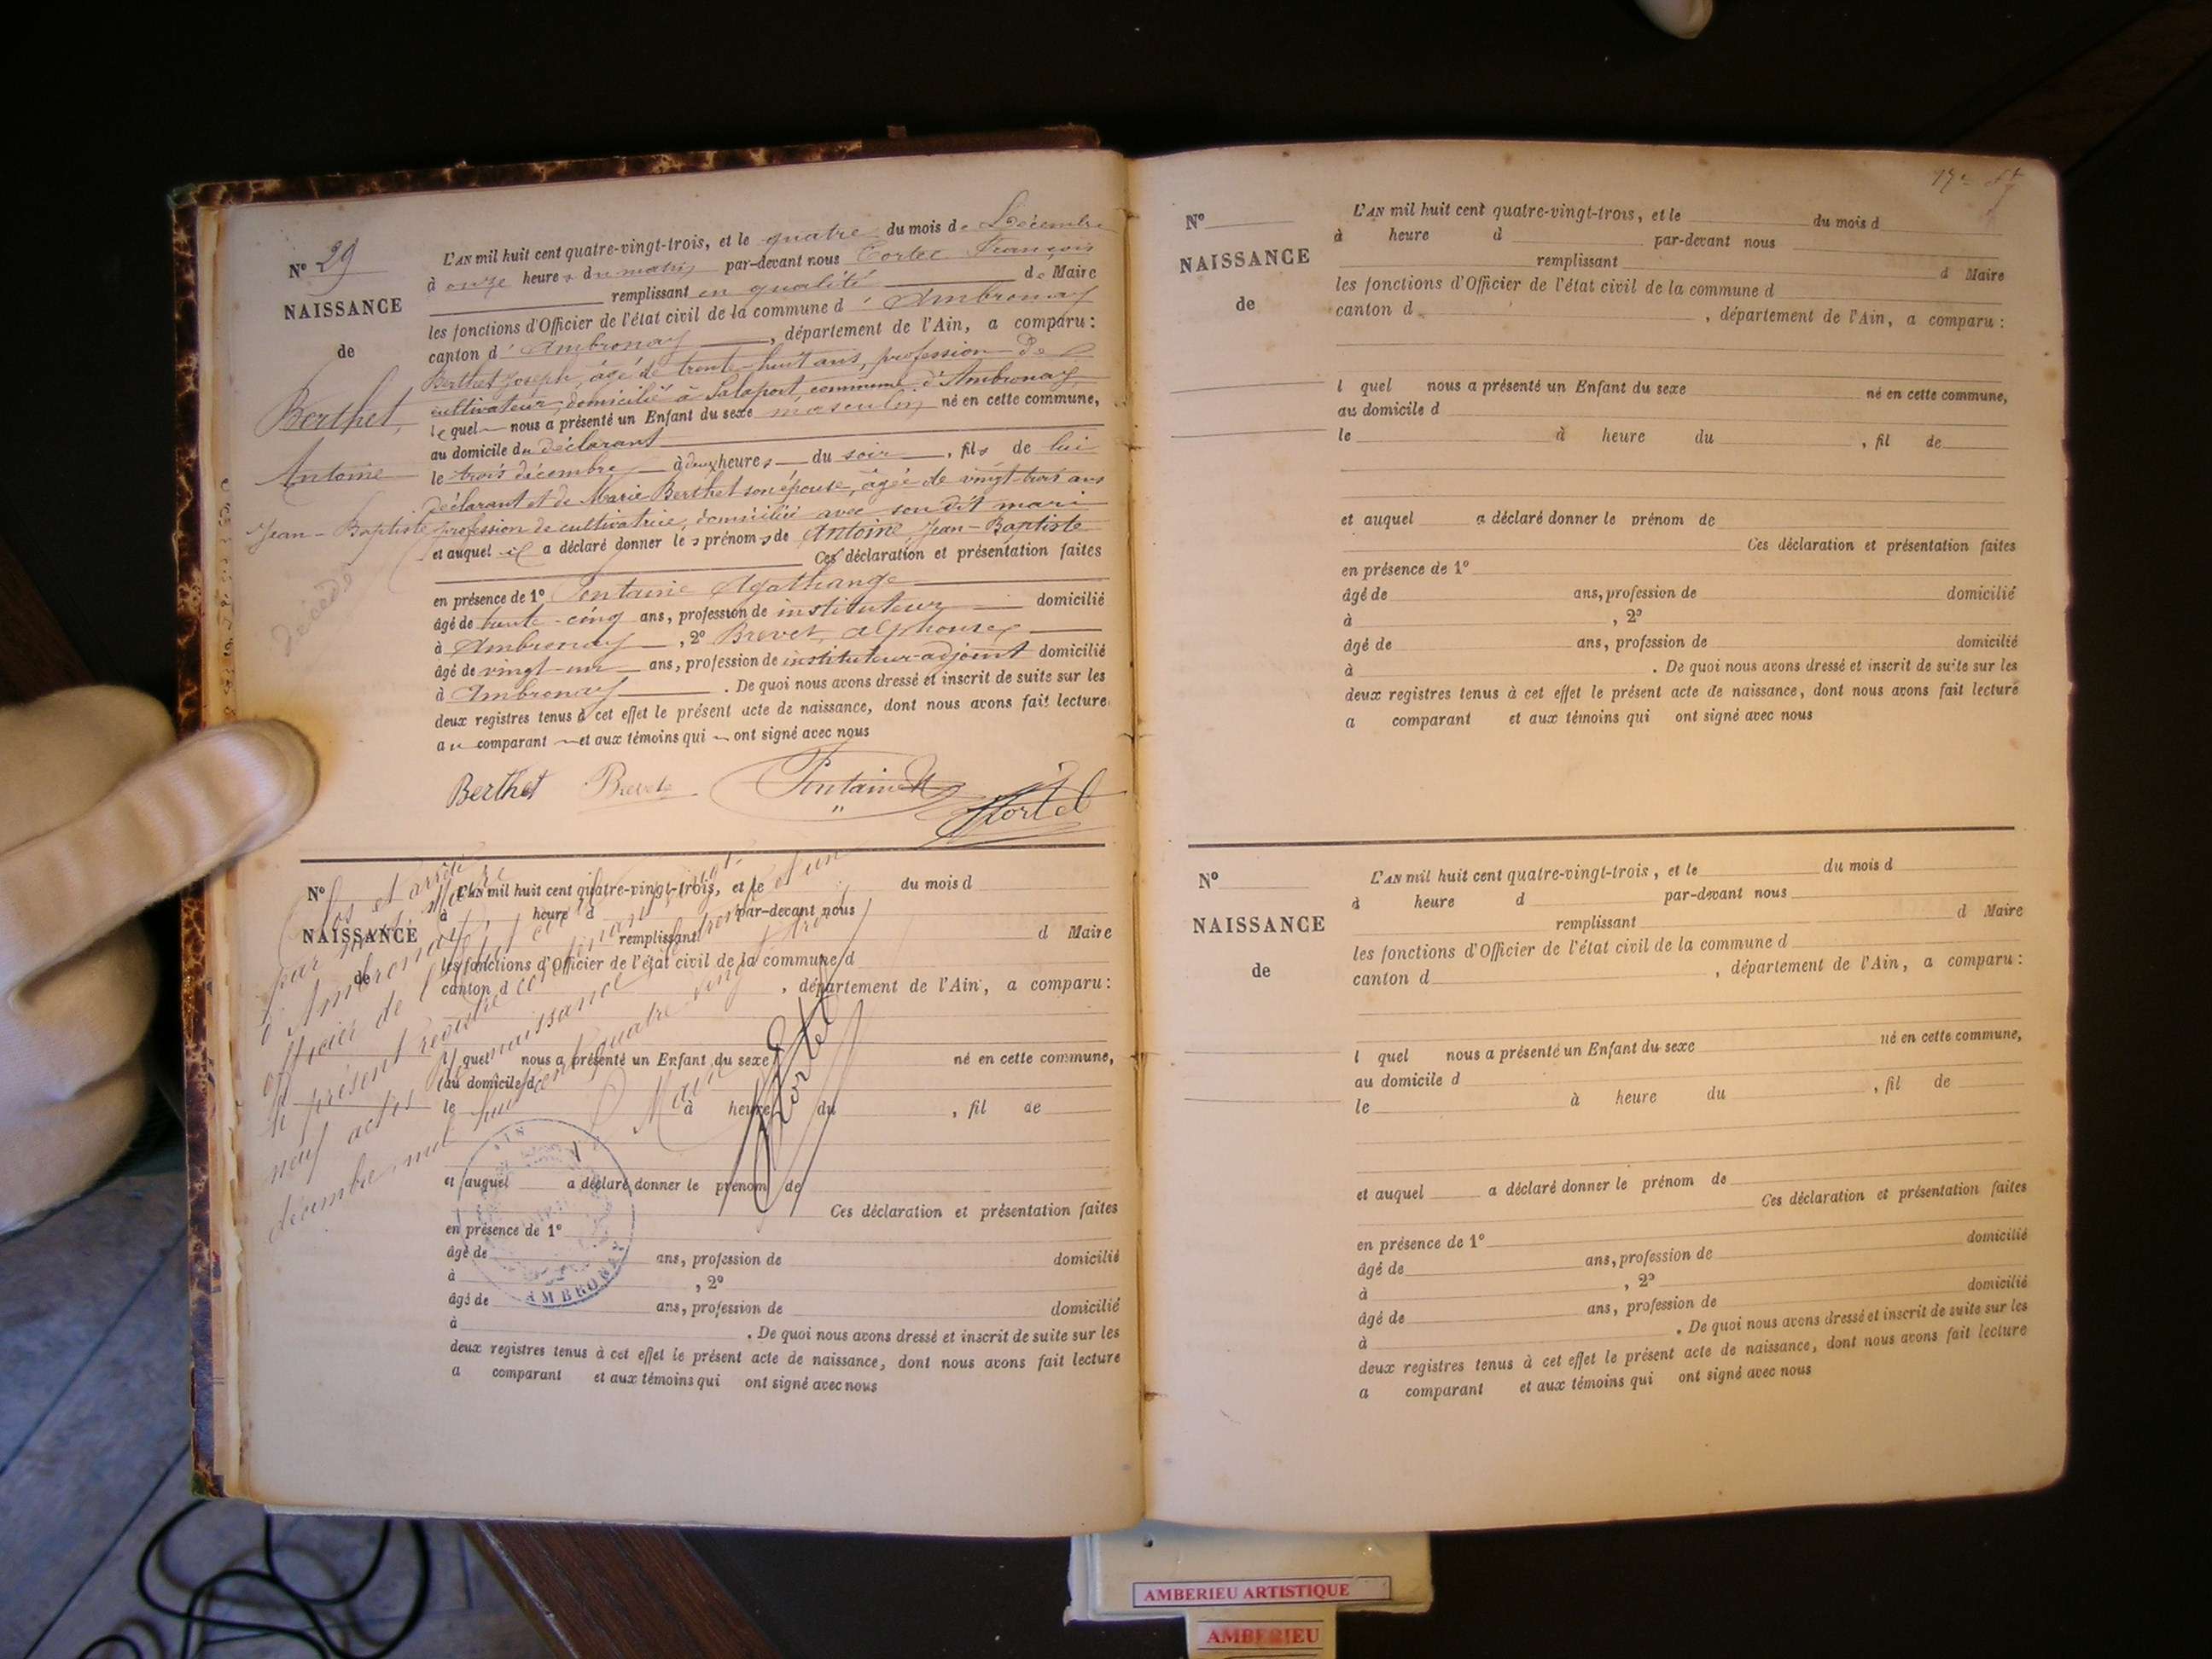 N° 29
NAISSANCE
de
Berthet,
Antoine
Jean-Baptiste
décédé
L'AN mil huit cent quatre-vingt-trois, et le quatre du mois de Décembre
à onze heures du matin par-devant nous Cortel François
remplissant en qualité de Maire
les fonctions d'Officier de l'état civil de la commune d'Ambronay
canton d'Ambronay, département de l'Ain, a comparu:
Berthet Joseph, âgé de trente-huit ans, profession de
cultivateur, domicilié à Salaport, commune d'Ambronay,
lequel nous a présenté un Enfant du sexe masculin né en cette commune,
au domicile du déclarant
le trois décembre à deux heures du soir, fils de lui
déclarant et de Marie Berthet son épouse, âgée de vingt-trois ans
profession de cultivatrice, domiciliée avec son dit mari
et auquel il a déclaré donner les prénoms de Antoine, Jean-Baptiste
Ces déclaration et présentation faites
en présence de 1° Fontaine Agathange
âgé de trente-cinq ans, profession de instituteur domicilié
à Ambronay, 2° Brevet, alphonse
âgé de vingt-un ans, profession de instituteur-adjoint domicilié
à Ambronay. De quoi nous avons dressé et inscrit de suite sur les
deux registres tenus à cet effet le présent acte de naissance, dont nous avons fait lecture
au comparant et aux témoins qui ont signé avec nous
Berthet Brevet Fontaine Cortel
N°
NAISSANCE
de
L'AN mil huit cent quatre-vingt-trois, et le du mois d
à heure d par-devant nous
remplissant d Maire
les fonctions d'Officier de l'état civil de la commune d
canton d , département de l'Ain, a comparu:
l quel nous a présenté un Enfant du sexe né en cette commune,
au domicile d
le à heure du , fil de
et auquel a déclaré donner le prénom de
Ces déclaration et présentation faites
en présence de 1°
âgé de ans, profession de domicilié
à , 2°
âgé de ans, profession de domicilié
à . De quoi nous avons dressé et inscrit de suite sur les
deux registres tenus à cet effet le présent acte de naissance, dont nous avons fait lecture
a comparant et aux témoins qui ont signé avec nous
Clos et arrêté
par nous Maire
d'Ambronay
officier de l'état civil
le présent registre contenant vingt
neuf actes de naissance le trente et un
décembre mil huit cent quatre vingt trois
Maire
Cortel
AIN
AMBRONAY
N°
NAISSANCE
de
L'AN mil huit cent quatre-vingt-trois, et le du mois d
à heure d par-devant nous
remplissant d Maire
les fonctions d'Officier de l'état civil de la commune d
canton d , département de l'Ain, a comparu:
l quel nous a présenté un Enfant du sexe né en cette commune,
au domicile d
le à heure du , fil de
et auquel a déclaré donner le prénom de
Ces déclaration et présentation faites
en présence de 1°
âgé de ans, profession de domicilié
à , 2°
âgé de ans, profession de domicilié
à . De quoi nous avons dressé et inscrit de suite sur les
deux registres tenus à cet effet le présent acte de naissance, dont nous avons fait lecture
a comparant et aux témoins qui ont signé avec nous
N°
NAISSANCE
de
L'AN mil huit cent quatre-vingt-trois, et le du mois d
à heure d par-devant nous
remplissant d Maire
les fonctions d'Officier de l'état civil de la commune d
canton d , département de l'Ain, a comparu:
l quel nous a présenté un Enfant du sexe né en cette commune,
au domicile d
le à heure du , fil de
et auquel a déclaré donner le prénom de
Ces déclaration et présentation faites
en présence de 1°
âgé de ans, profession de domicilié
à , 2°
âgé de ans, profession de domicilié
à . De quoi nous avons dressé et inscrit de suite sur les
deux registres tenus à cet effet le présent acte de naissance, dont nous avons fait lecture
a comparant et aux témoins qui ont signé avec nous
AMBERIEU ARTISTIQUE
AMBERIEU